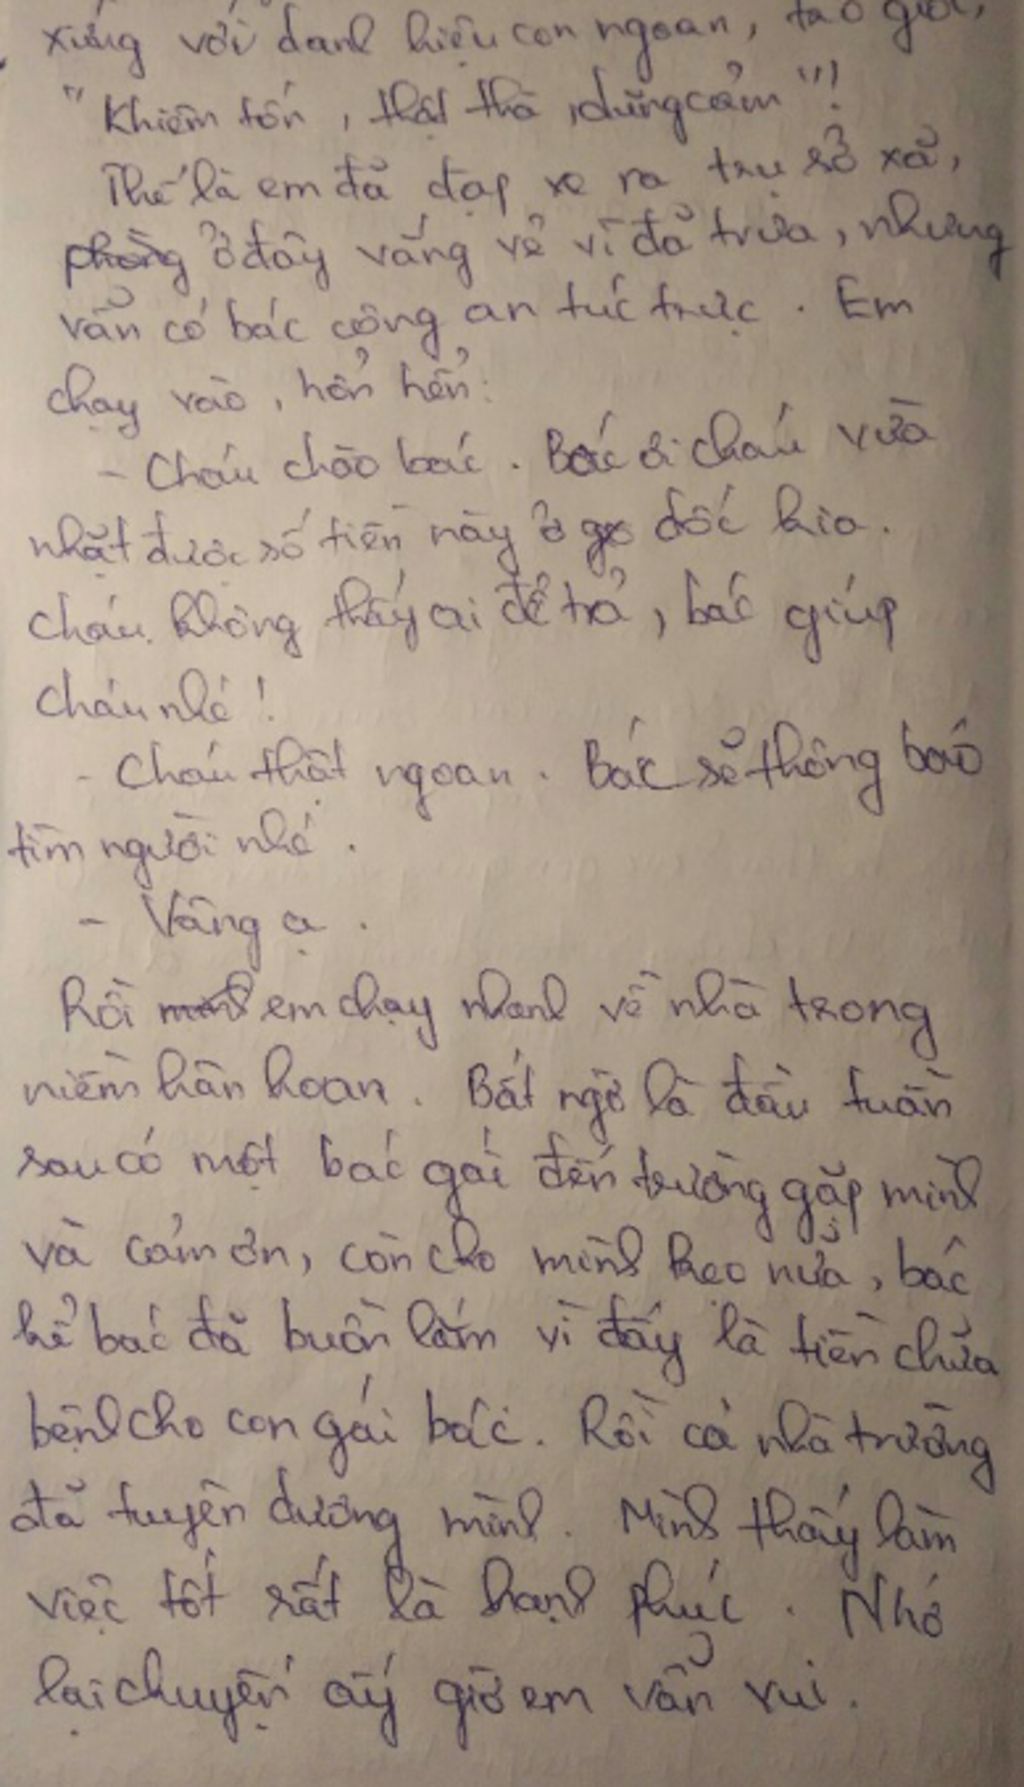 xứng với danh hiệu con ngoan, trò giỏi,
"Khiêm tốn, thật thà, dũng cảm"!
Thế là em đã đạp xe ra trụ sở xã,
phòng ở đây vắng vẻ vì đã trưa, nhưng
vẫn có bác công an túc trực. Em
chạy vào, hổn hển:
- Cháu chào bác. Bác ơi cháu vừa
nhặt được số tiền này ở dốc kia.
Cháu không thấy ai để trả, bác giúp
cháu nhé!
- Cháu thật ngoan. Bác sẽ thông báo
tìm người nhé.
- Vâng ạ.
Rồi mình em chạy nhanh về nhà trong
niềm hân hoan. Bất ngờ là đầu tuần
sau có một bác gái đến trường gặp mình
và cảm ơn, còn cho mình kẹo nữa, bác
kể bác đã buồn lắm vì đấy là tiền chữa
bệnh cho con gái bác. Rồi cả nhà trường
đã tuyên dương mình. Mình thấy làm
việc tốt rất là hạnh phúc. Nhớ
lại chuyện ấy giờ em vẫn vui.